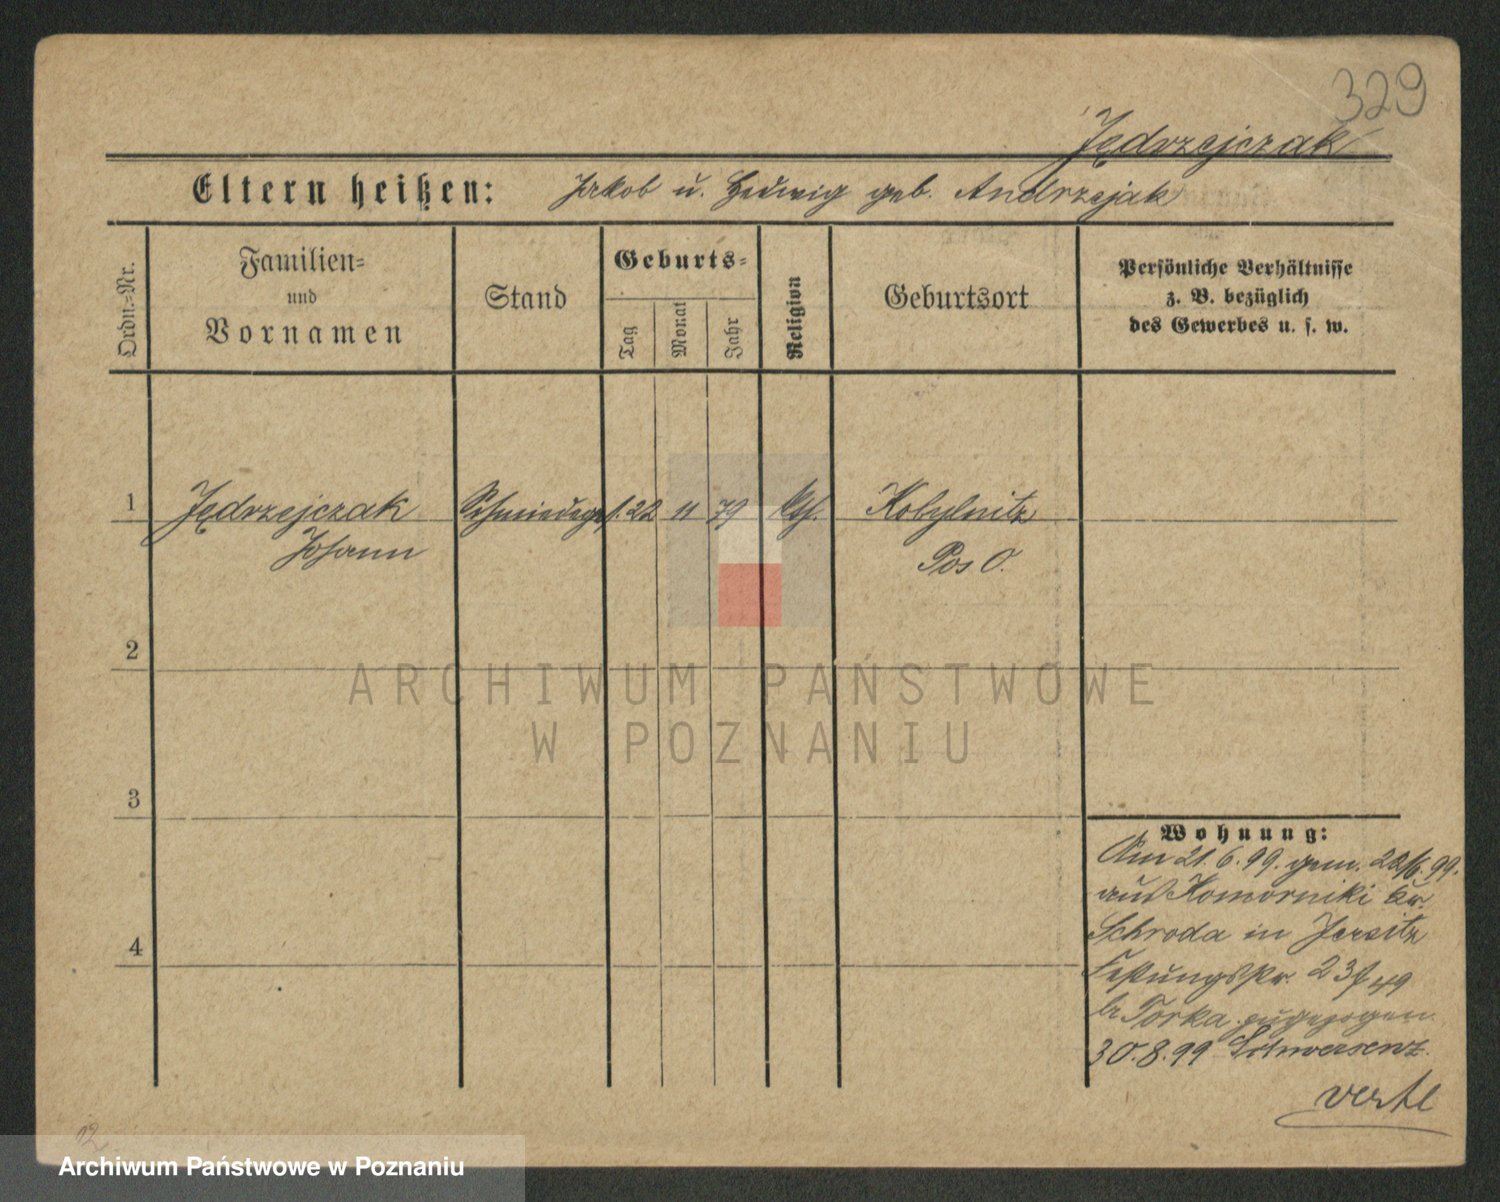 329
Jędrzejczak
Eltern heißen: Jakob u. Hedwig geb. Andrzejak
Ordn.=Nr.
Familien=
und
Vornamen
Stand
Geburts=
Tag
Monat
Jahr
Religion
Geburtsort
Persönliche Verhältnisse
z. B. bezüglich
des Gewerbes u. s. w.
1 Jędrzejczak Schmiedeges. 22 11 79 kth. Kobylnitz
Johann Pos O.
2
3
4
Wohnung:
Am 21.6.99. gem. 22/6.99.
aus Komorniki Kr.
Schroda in Jersitz
Festungsstr. 23
b Torka zugezogen
30.8.99 Schwersenz.
verte
12
ARCHIWUM PAŃSTWOWE
W POZNANIU
Archiwum Państwowe w Poznaniu